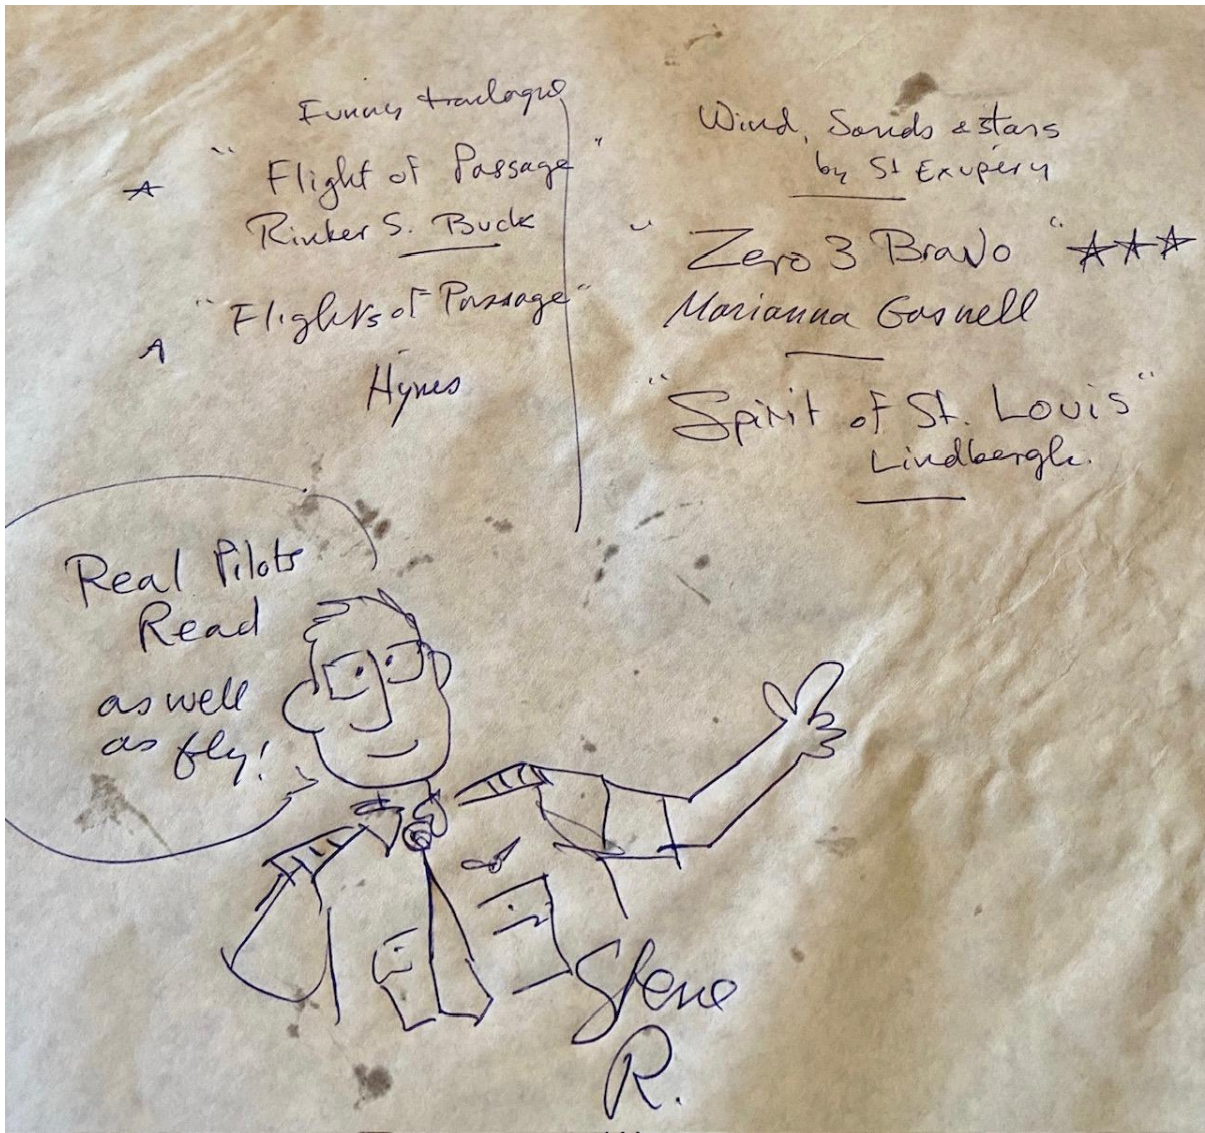 Funny travlogue
"Flight of Passage"
Rinker S. Buck
"Flights of Passage"
Hynes
Wind, Sands & stars
by St Exupéry
"Zero 3 Bravo"
Marianna Gosnell
"Spirit of St. Louis"
Lindbergh.
Real Pilots
Read
as well
as fly!
Steve
R.